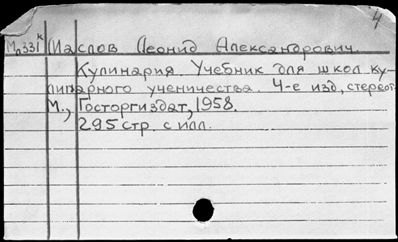 4
Мл331к Маслов Леонид Александрович.
Кулинария. Учебник для школ ку-
линарного ученичества. 4-е изд, стереот.
М., Госторгиздат, 1958.
295 стр. с илл.